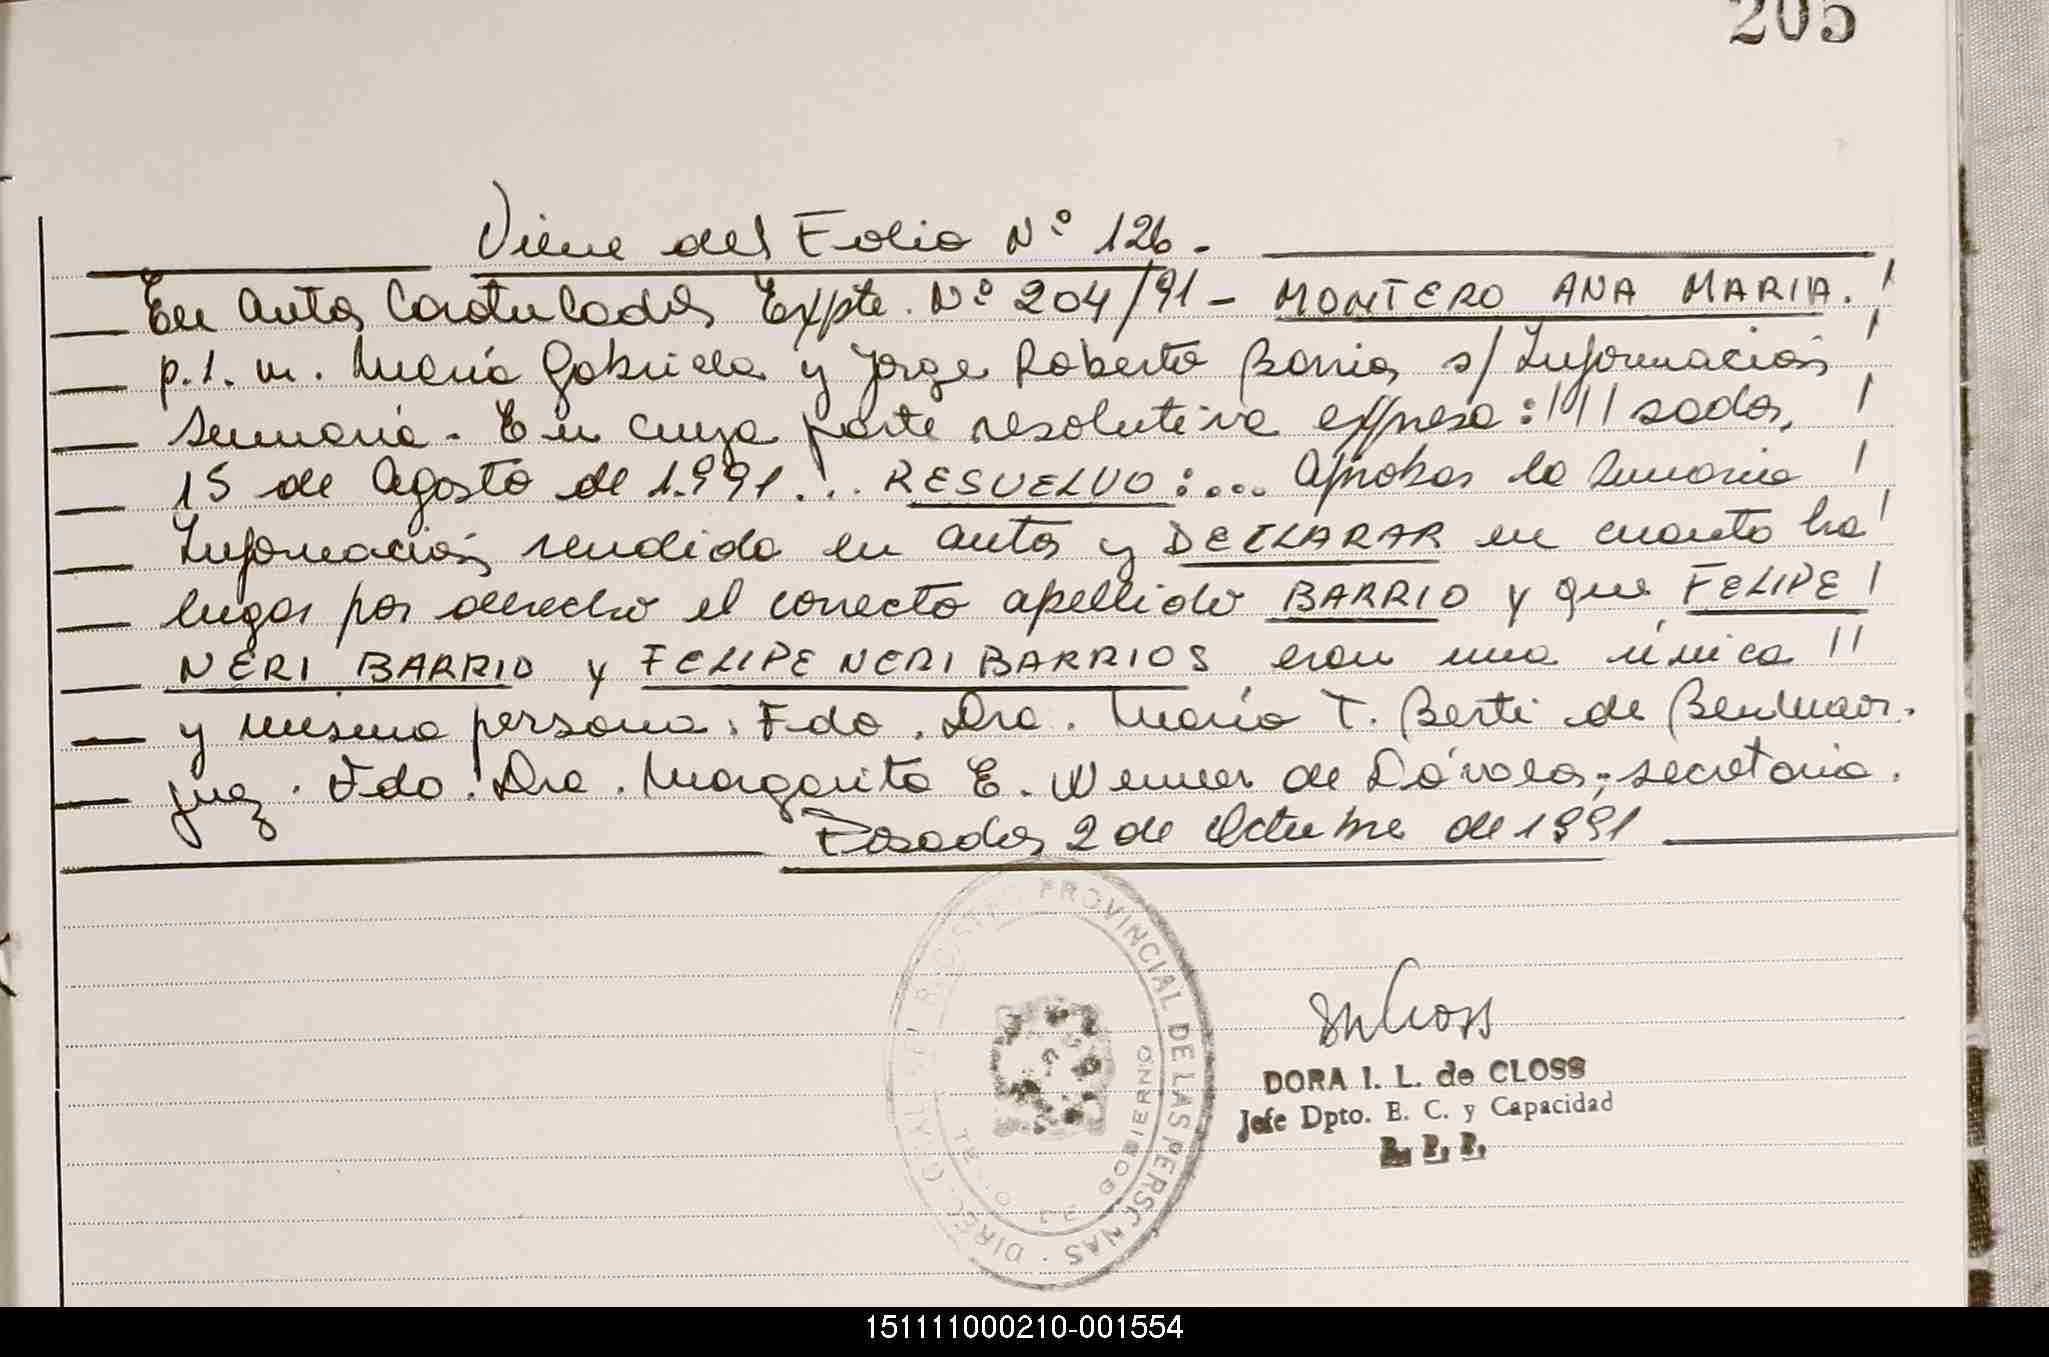 205
Viene del Folio Nº 126.
En autos Caratulados Expte. Nº 204/91 - MONTERO ANA MARIA.
p.s.m. María Gabriela y Jorge Roberto Barrios s/ Información
Sumaria. En cuya parte resolutiva expresa: "///sadas,
15 de Agosto de 1.991... RESUELVO:... Aprobar la Sumaria
Información rendida en autos y DECLARAR en cuanto ha
lugar por derecho el correcto apellido BARRIO y que FELIPE
NERI BARRIO y FELIPE NERI BARRIOS eran una única
y misma persona. Fdo. Dra. María T. Berti de
Juez. Fdo. Dra. Margarita E. de Dávalos, secretaria.
Posadas 2 de Octubre de 1991
PROVINCIAL DE LAS PERSONAS
DIREC. GRAL. DEL REGISTRO
DE GOBIERNO
DORA I. L. de CLOSS
Jefe Dpto. E. C. y Capacidad
R. P. P.
151111000210-001554